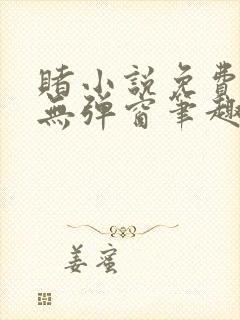 睹小説免費
無彈窗筆趣
姜蜜